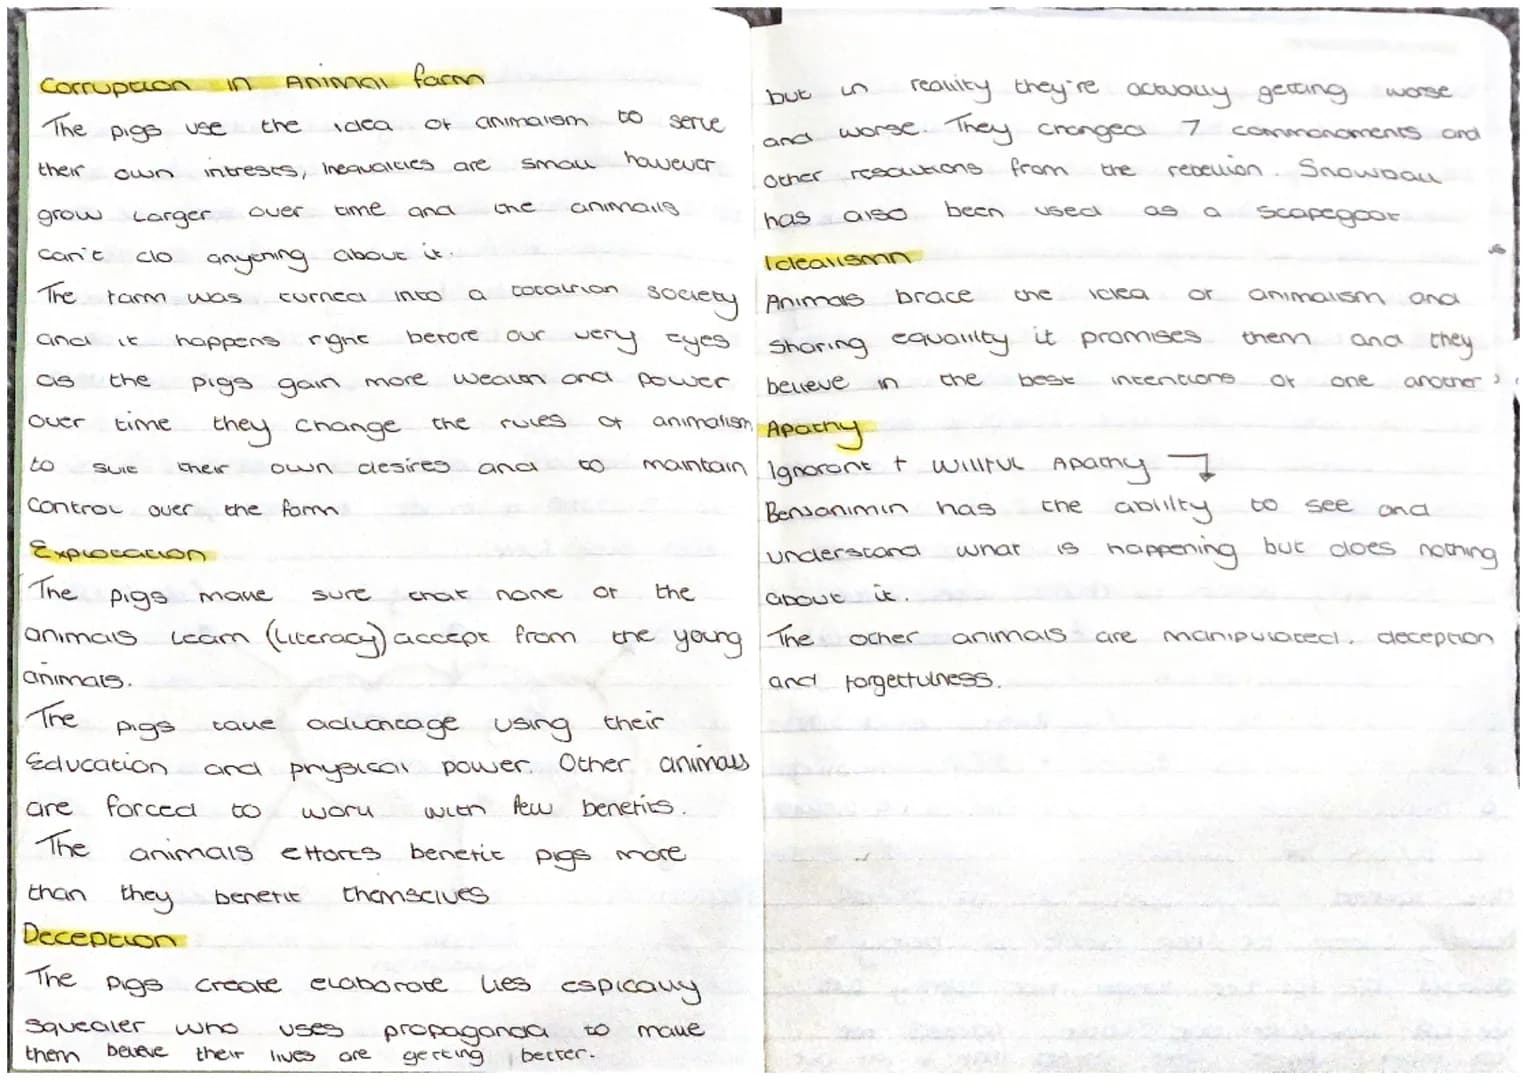 Corruption in Animal farm
The pigs use the idea of animalism to serve
their own intrests, Inequalities are small however
grow Larger over time and the animals
can't do anything about it.
The farm was turned into a totalrian society
and it happens right before our very eyes
as the pigs gain more wealth and power
over time they change the rules of animalism
to suit their own desires and to maintain
control over the farm
Explotation
The pigs make sure that none of the
animals learn (Literacy) accept from the young
animals.
The pigs take advantage using their
Education and physical power. Other animals
are forced to work with few benefits.
The animals efforts benefit pigs more
than they benefit themselves
Deception
The pigs create elaborate lies espically
Squealer who uses propaganda to make
them believe their lives are getting better.
but in reality they're actually getting worse
and worse. They changed 7 commandments and
other resolutions from the rebellion. Snowball
has also been used as a scapegoat
Idealismn
Animals brace the idea of animalism and
sharing equality it promises them and they
believe in the best intentions of one another
Apathy
Ignorant + Willful Apathy
Bensanimin has the ability to see and
understand what is happening but does nothing
about it.
The other animals are manipulated. deception
and forgetfulness.